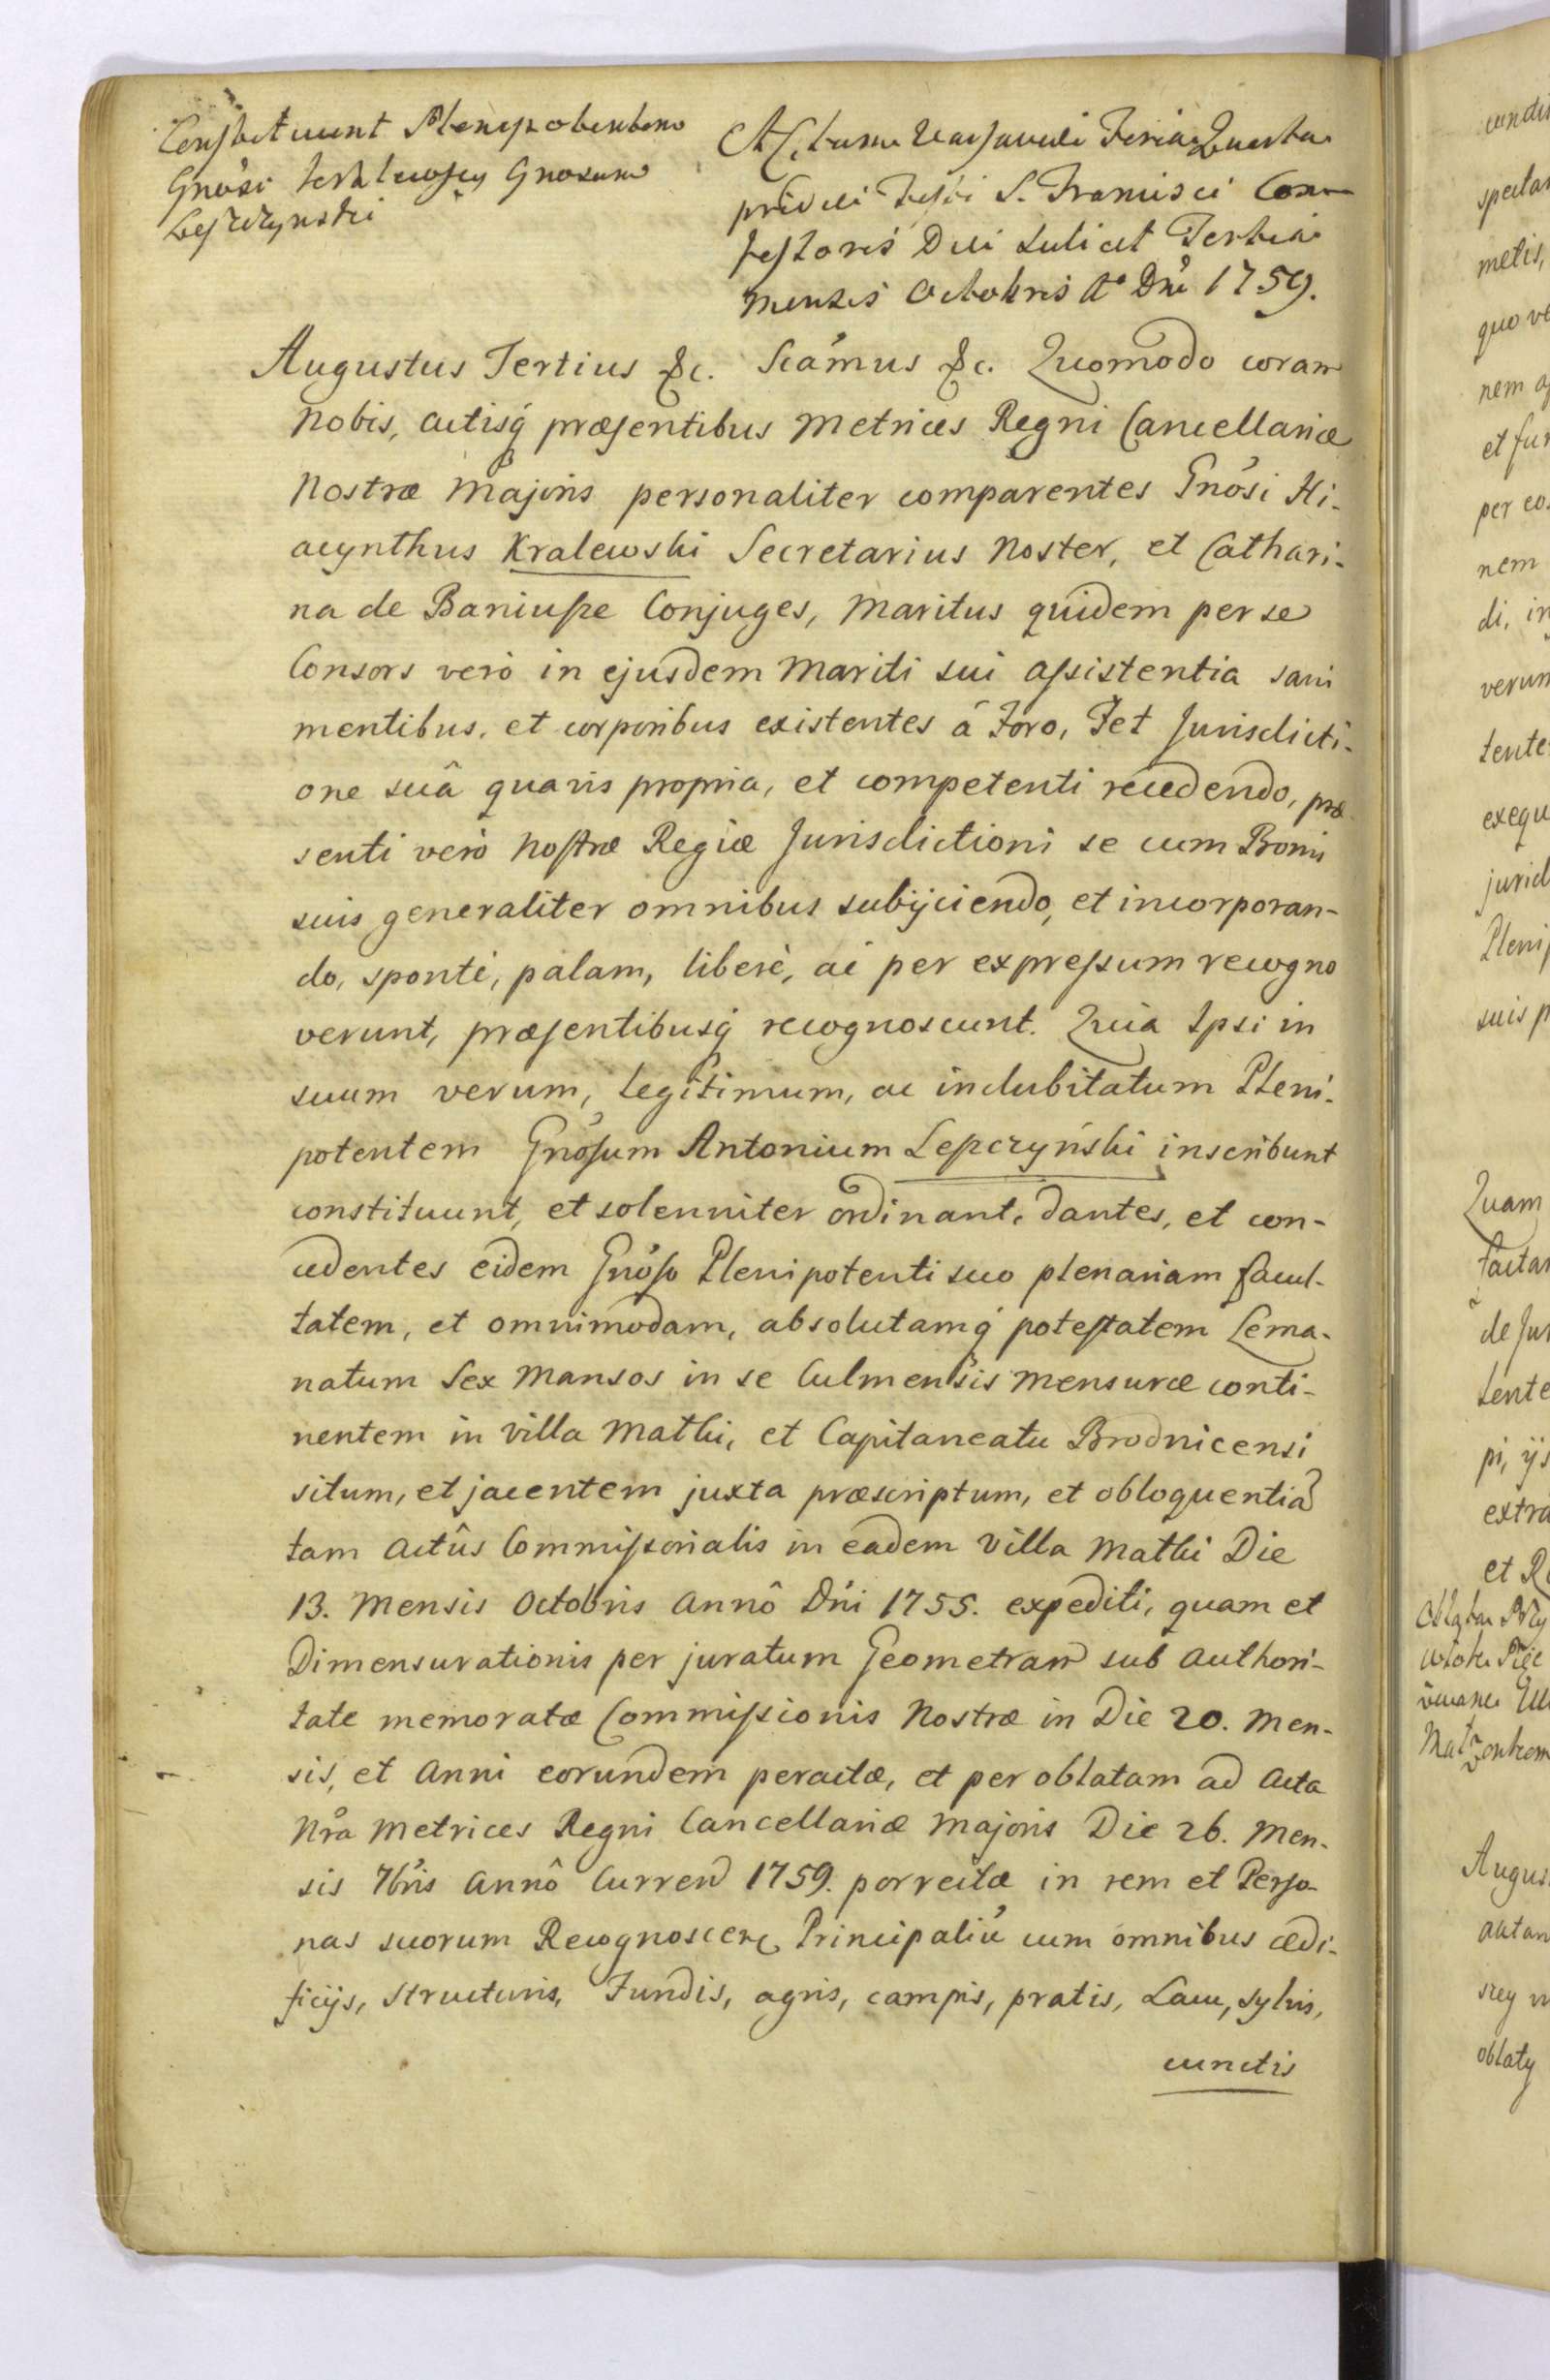 Constituunt Plenipotentem
Gnõsi Kralewscy Gnosum
Leszczynski
Actum Varsaviæ Feria Quarta
pridie Festi S. Francisci Con
fessoris Die scilicet Tertia
mensis Octobris Aº Dni 1759.
Augustus Tertius &c. Sċamus &c. Quomodo coram
Nobis, actisq́ præsentibus Metrices Regni Cancellariæ
Nostræ Majoris personaliter comparentes Gnõsi Hi-
acynthus Kralewski Secretarius Noster, et Cathari-
na de Baniuskie Conjuges, Maritus quidem per se
Consors verò in ejusdem Mariti sui assistentia sani
mentibus, et corporibus existentes à Foro, et Jurisdicti-
one suâ quavis propria, et competenti recedendo, præ
senti verò Nostræ Regiæ Jurisdictioni se cum Bonis
suis generaliter omnibus subijciendo, et incorporan-
do, sponte, palam, liberè, ac per expressum recogno
verunt, præsentibusq́ recognoscunt. Quia Ipsi in
suum verum, legitimum, ac indubitatum Pleni-
potentem Gnõsum Antonium Leszczyński inscribunt
constituunt, et solenniter ordinant, dantes, et con-
cedentes eidem Gnõso Plenipotenti suo plenariam facul-
tatem, et omnimodam, absolutamq́ potestatem Lema-
natum Sex Mansos in se Culmensis mensuræ conti-
nentem in Villa Matki, et Capitaneatu Brodnicensi
situm, et jacentem juxta præscriptum, et obloquentiã
tam Actûs Commissorialis in eadem Villa Matki Die
13. Mensis Octobris Annô Dńi 1755. expediti, quam et
Dimensurationis per juratum Geometram sub Authori-
tate memoratæ Commissionis Nostræ in Die 20. Men-
sis, et Anni eorundem peractæ, et per oblatam ad Acta
Nra Metrices Regni Cancellariæ Majoris Die 26. Men-
sis 7bris Annô Curren 1759. porrectæ in rem et Perso-
nas suorum Recognoscen Principaliũ cum omnibus ædi-
ficijs, structuris, Fundis, agris, campis, pratis, Lacu, sylvis,
cunctis
spectan
metis,
quo ve
nem
et fun
per eo
nem
di, in
verum
tente
exequ
jurid
Plenip
suis p
Quam
factam
de Jur
tente
pi, ijs
extra
et R
Augus
autam
oblaty